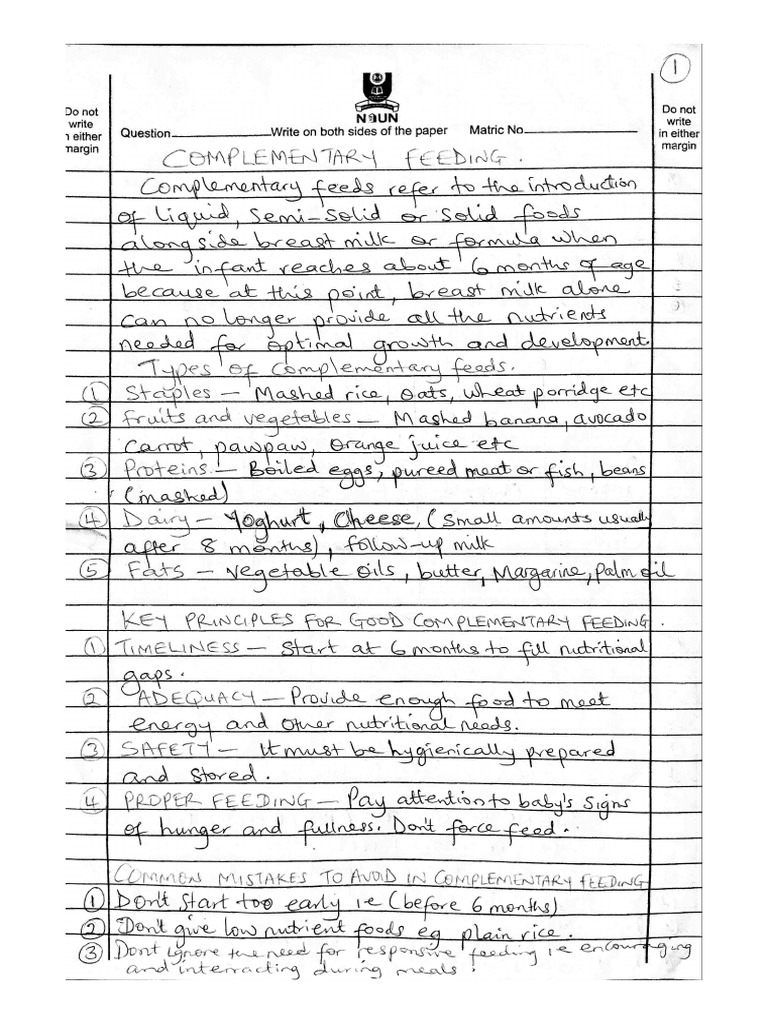 1
NOUN
Do not
write
in either
margin
Question
Write on both sides of the paper
Matric No
Do not
write
in either
margin
COMPLEMENTARY FEEDING.
Complementary feeds refer to the introduction
of liquid, semi-solid or solid foods
alongside breast milk or formula when
the infant reaches about 6 months of age
because at this point, breast milk alone
can no longer provide all the nutrients
needed for optimal growth and development.
Types of complementary feeds.
1 Staples – Mashed rice, oats, wheat porridge etc
2 Fruits and vegetables – Mashed banana, avocado
carrot, pawpaw, orange juice etc
3 Proteins – Boiled eggs, pureed meat or fish, beans
(mashed)
4 Dairy – Yoghurt, Cheese, (small amounts usually
after 8 months), follow-up milk
5 Fats – vegetable oils, butter, Margarine, palm oil
KEY PRINCIPLES FOR GOOD COMPLEMENTARY FEEDING.
1 TIMELINESS – Start at 6 months to fill nutritional
gaps.
2 ADEQUACY – Provide enough food to meet
energy and other nutritional needs.
3 SAFETY – It must be hygienically prepared
and stored.
4 PROPER FEEDING – Pay attention to baby's signs
of hunger and fullness. Don't force feed.
COMMON MISTAKES TO AVOID IN COMPLEMENTARY FEEDING
1 Don't start too early ie (before 6 months)
2 Don't give low nutrient foods eg plain rice.
3 Dont ignore the need for responsive feeding i.e encouraging
and interracting during meals.